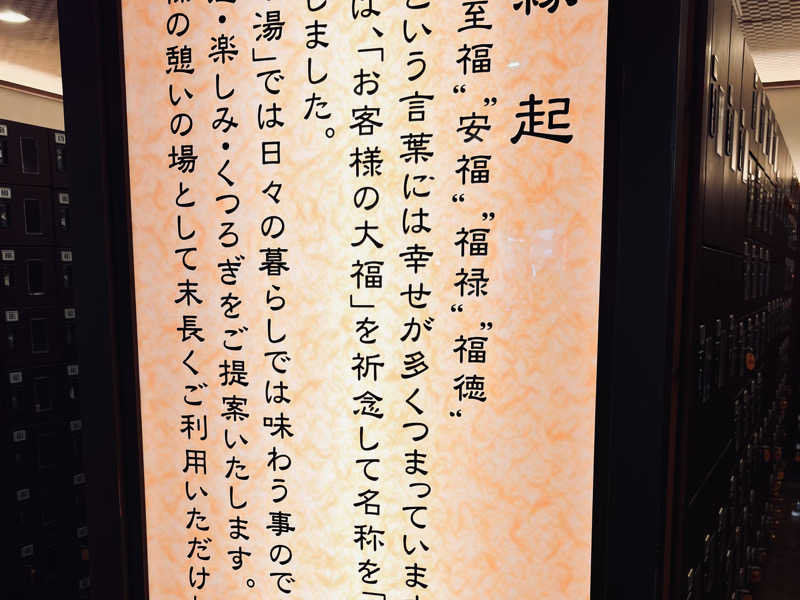 起
至福“ ”安福“ ”福禄“ ”福徳“
という言葉には幸せが多くつまっています
は、「お客様の大福」を祈念して名称を「
しました。
湯」では日々の暮らしでは味わう事ので
・楽しみ・くつろぎをご提案いたします。
様の憩いの場として末長くご利用いただけ